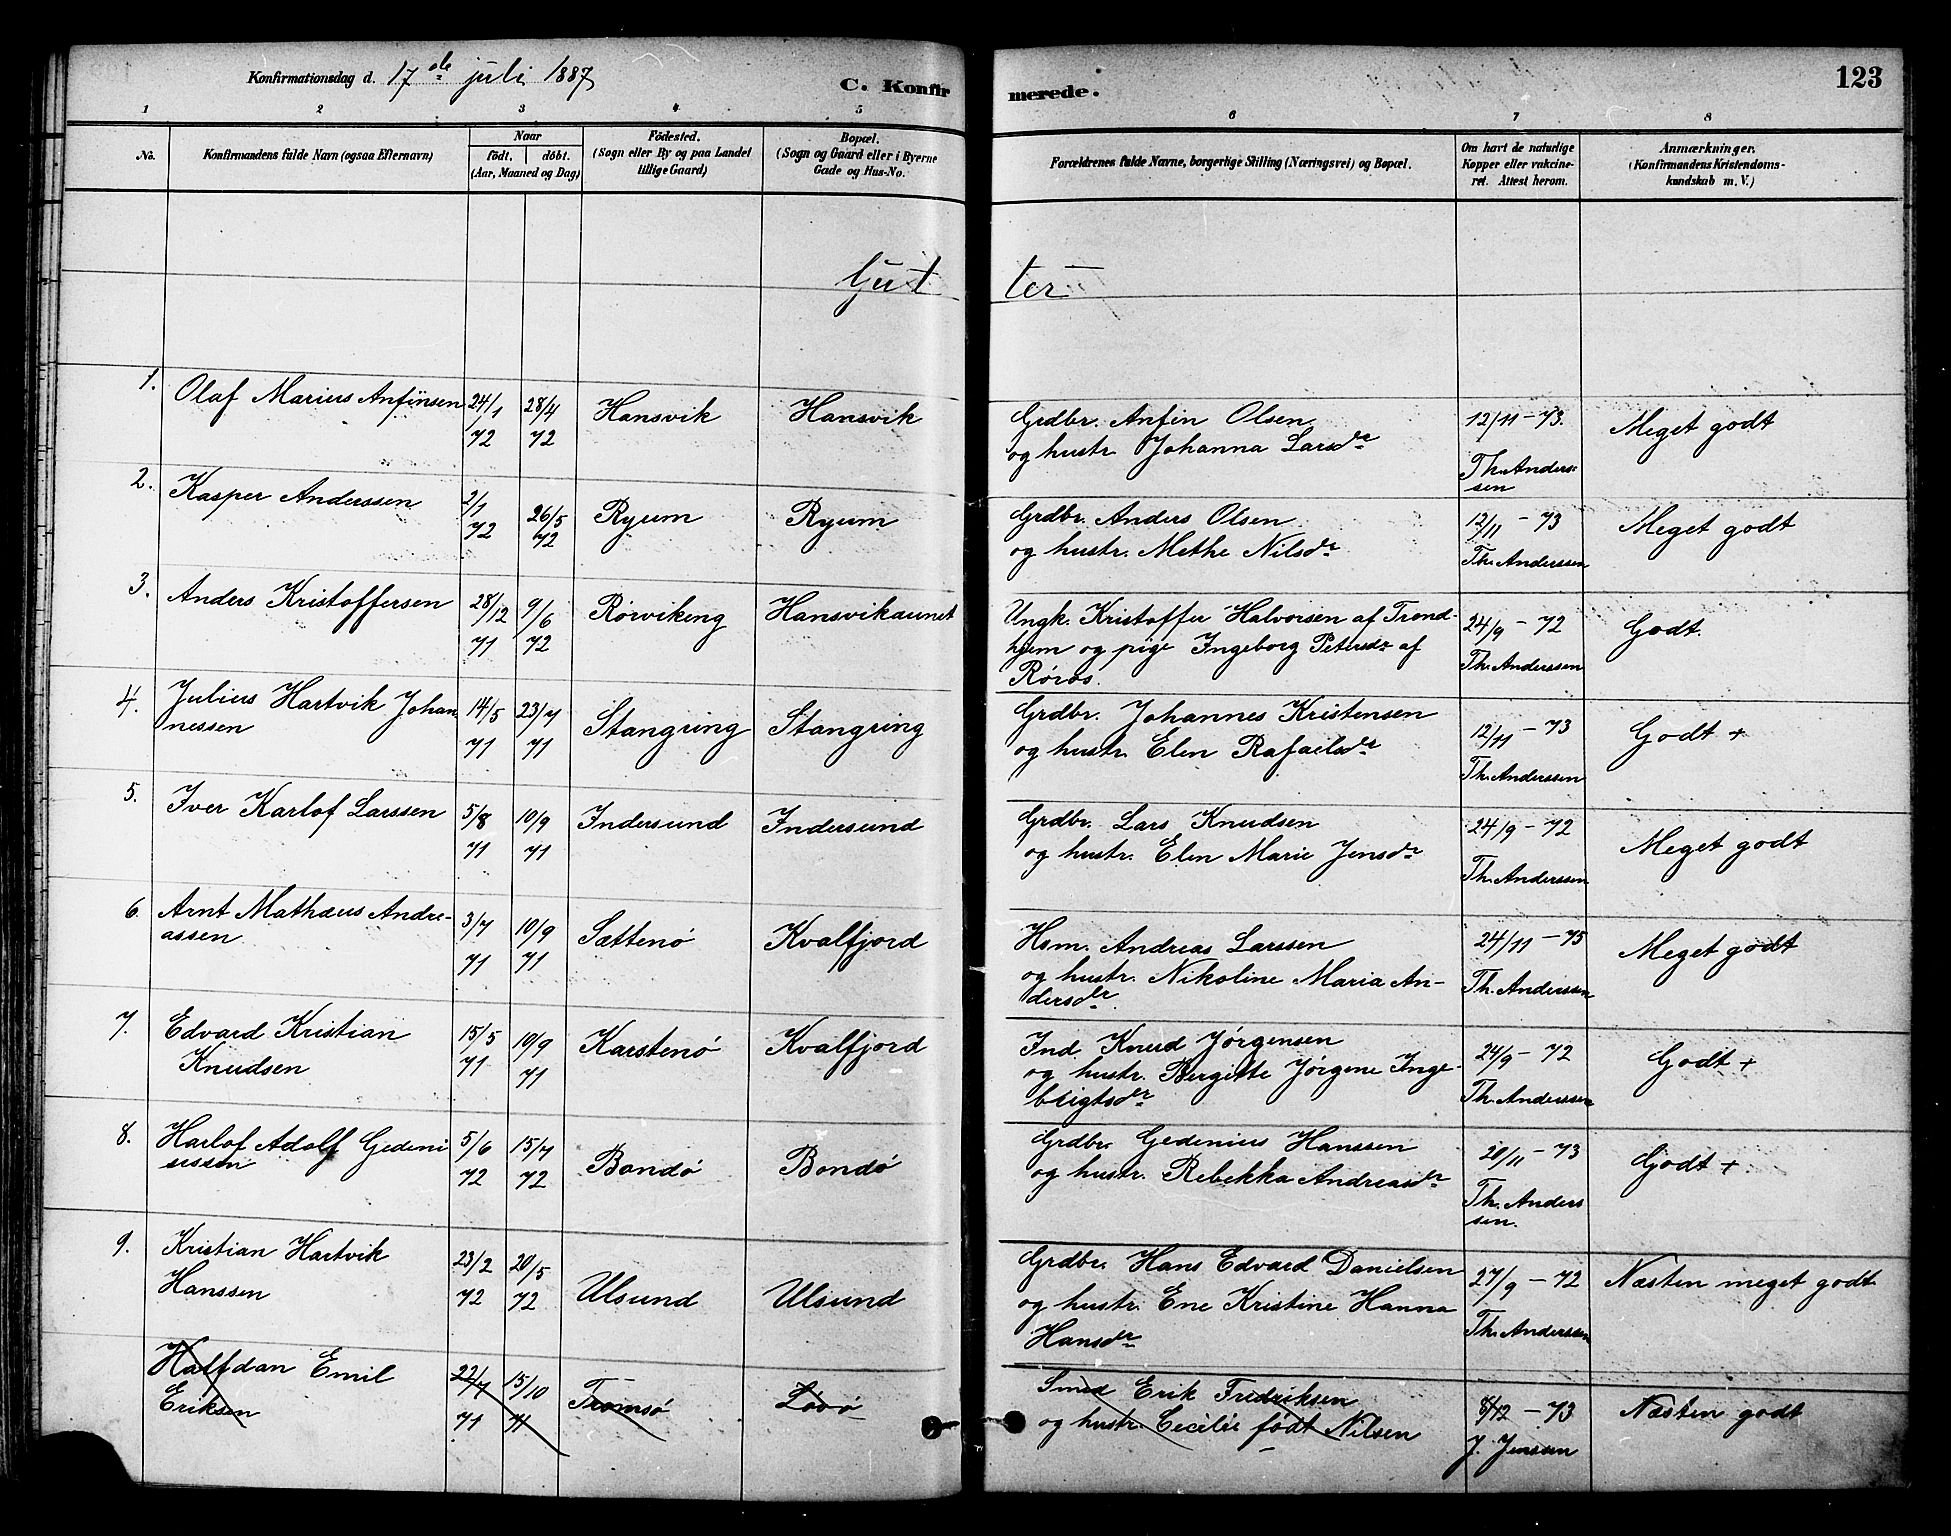 Konfirmationsdag d. 17de juli 1887
C. Konfirmerede.
123
1 2 3 4 5 6 7 8
No.
Konfirmandens fulde Navn (ogsaa Efternavn)
Naar
födt. döbt.
(Aar, Maaned og Dag)
Födested.
(Sogn eller By og paa Landet
tillige Gaard)
Bopæl.
(Sogn og Gaard eller i Byerne
Gade og Hus-No.
Forældrenes fulde Navne, borgerlige Stilling (Næringsvei) og Bopæl.
Om havt de naturlige
Kopper eller vakcine-
ret. Attest herom.
Anmærkninger.
(Konfirmandens Kristendoms-
kundskab m. V.)
Gutter
1. Olaf Marius Anfinsen 24/1 72 28/4 72 Hansvik Hansvik
Grdbr. Anfin Olsen
og hustr. Johanna Larsdr
12/11-73.
Th. Anders-
sen
Meget godt
2. Kasper Anderssen 2/1 72 26/5 72 Ryum Ryum
Grdbr. Anders Olsen
og hustr. Methe Nilsdr
12/11-73
Th. Anderssen
Meget godt
3. Anders Kristoffersen 28/12 71 9/6 72 Rörvikeng Hansvikaunet
Ungk. Kristoffer Halvorsen af Trond-
hjem og pige Ingeborg Petersdr af
Röros.
24/9-72
Th. Anderssen
Godt.
4. Julius Hartvik Johan-
nessen 14/5 71 23/7 71 Stangring Stangring
Grdbr. Johannes Kristensen
og hustr. Elen Rafaelsdr
12/11-73
Th. Anderssen
Godt +
5. Iver Karlof Larssen 5/8 71 10/9 71 Indersund Indersund
Grdbr. Lars Knudsen
og hustr. Elen Marie Jensdr
24/9-72
Th. Anderssen
Meget godt
6. Arnt Mathæus Andre-
assen 3/7 71 10/9 71 Sættenö Kvalfjord
Hsm. Andreas Larssen
og hustr. Nikoline Maria An-
dersdr.
24/11-75
Th. Anderssen
Meget godt
7. Edvard Kristian
Knudsen 15/5 71 10/9 71 Karstenö Kvalfjord
Ind. Knud Jörgensen
og hustr. Bergitte Jörgene Inge-
brigtsdr
24/9-72
Th. Anderssen
Godt +
8. Harlof Adolf Gedeni
ussen 5/6 72 15/7 72 Bondö Bondö
Grdbr. Gedenius Hanssen
og hustr. Rebekka Andreasdr
20/11-73
Th. Anders
sen.
Godt +.
9. Kristian Hartvik
Hanssen 23/2 72 20/5 72 Ulsund Ulsund
Grdbr. Hans Edvard Danielsen
og hustr. Ene Kristine Hanna
Hansdr
27/9-72
Th. Anderssen
Næsten meget godt
Halfdan Emil
Eriksen 22/7 71 15/10 71 Tromsö Lövö
Smed Erik Fredriksen
og hustr. Cecilie födt Nilsen
8/12-73
J. Jenssen
Næsten godt